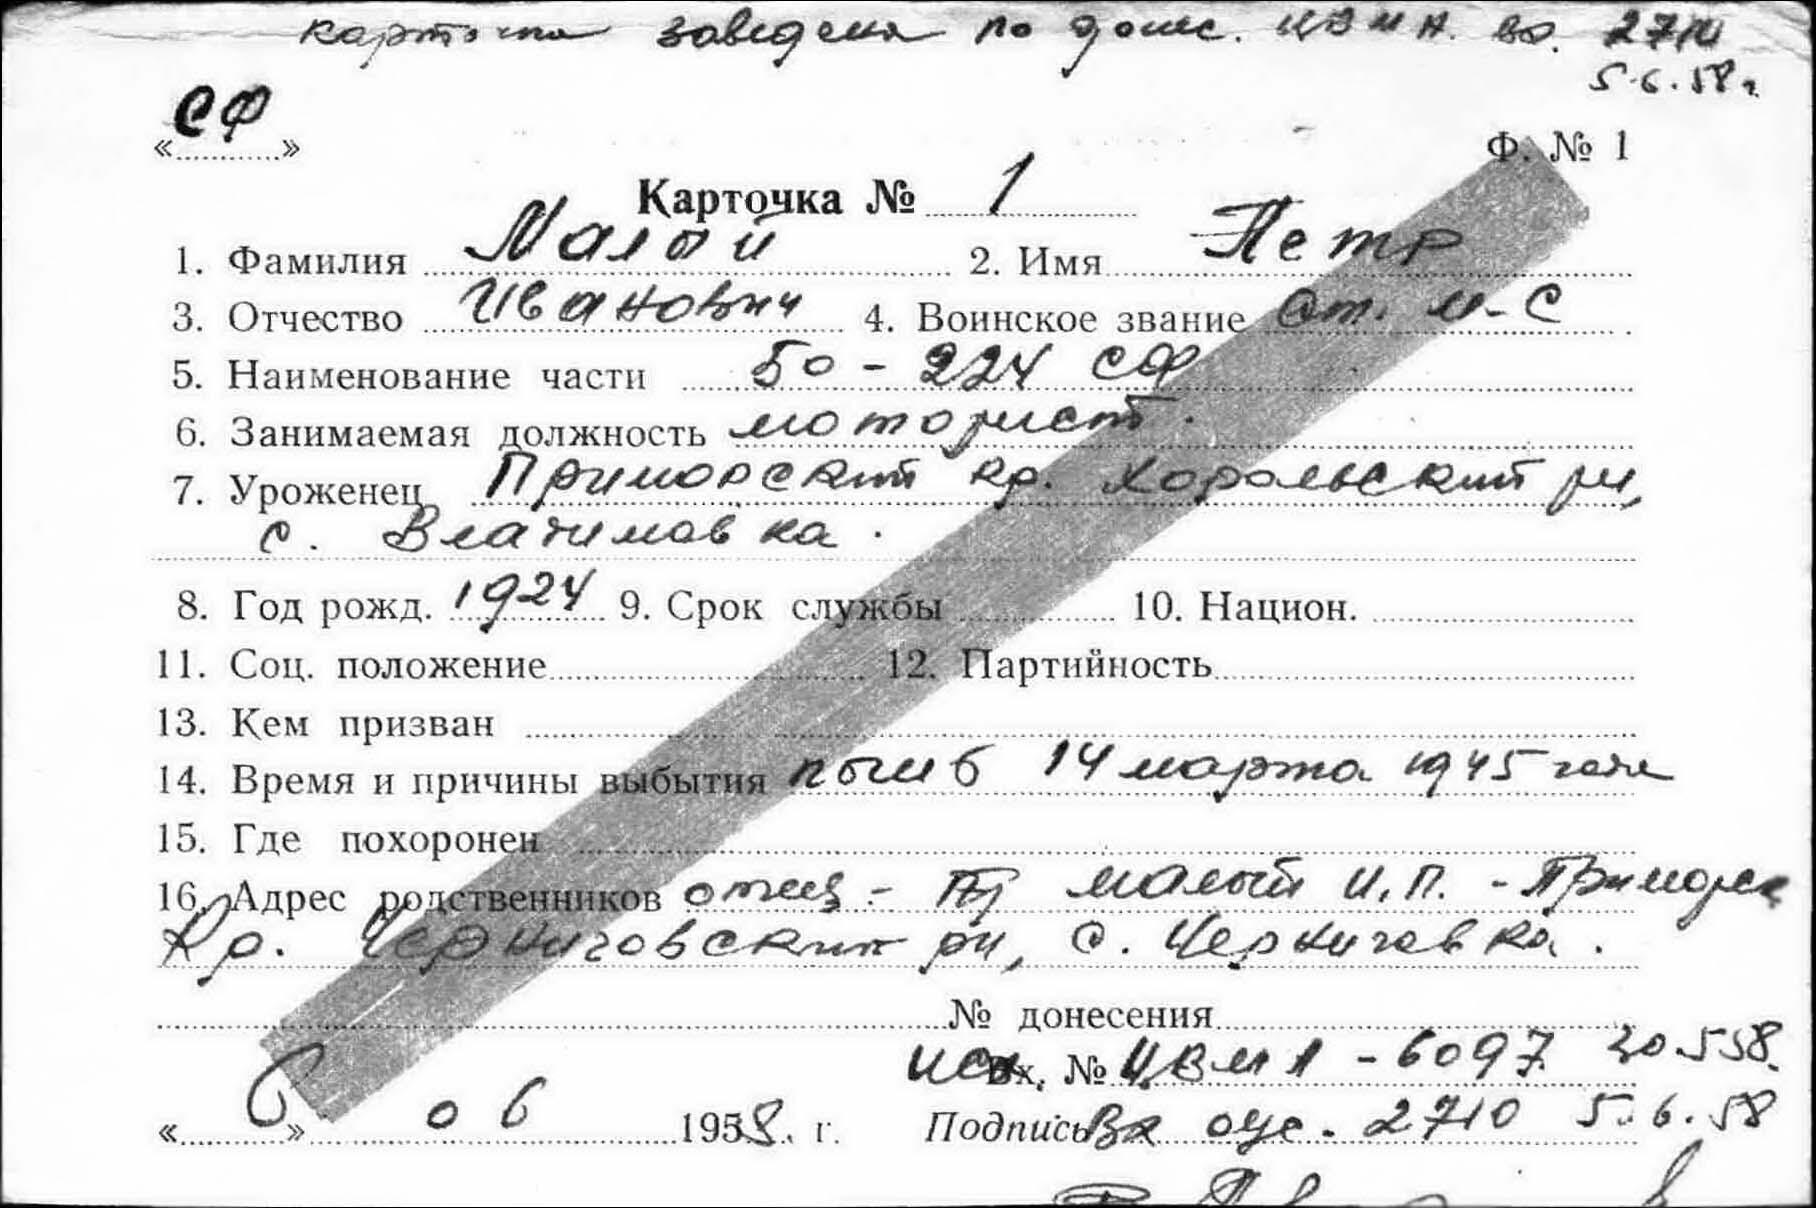 карточка заведена по донес. ЦВМА. вх. 2710
5.6.58 г.
СФ
«............» Ф. № 1
Карточка № 1
1. Фамилия Малый 2. Имя Петр
3. Отчество Иванович 4. Воинское звание Ст. м-с
5. Наименование части БО - 224 СФ
6. Занимаемая должность моторист.
7. Уроженец Приморский кр. Хорольский рн,
с. Владимовка.
8. Год рожд. 1924 9. Срок службы 10. Национ.
11. Соц. положение 12. Партийность
13. Кем призван
14. Время и причины выбытия погиб 14 марта 1945 года
15. Где похоронен
16. Адрес родственников отец - Малый И.П. - Приморск
Кр. Черниговский рн, с. Черниговка.
№ донесения
исх Вх. № ЦВМА - 6097 30.5.58.
«6» 06 1958. г. Подпись Вх оус. 2710 5.6.58